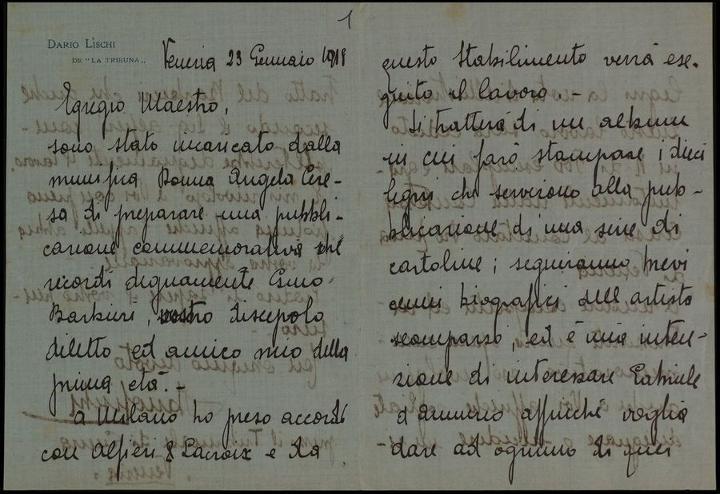 1
DARIO LISCHI
DE "LA TRIBUNA"
Venezia 23 Gennaio 1919
Egregio Maestro,
sono stato incaricato dalla
munifica Donna Angela Cere-
sa di preparare una pubbli-
cazione commemorativa che
ricordi degnamente Emo
Barburi, vostro discepolo
diletto ed amico mio della
prima età.-
A Milano ho preso accordi
con Alfieri & Lacroix e da
questo stabilimento verrà ese-
guito il lavoro.-
Si tratterà di un album
in cui farò stampare i dieci
legni che servirono alla pub-
blicazione di una serie di
cartoline; seguiranno brevi
cenni biografici dell'artista
scomparso, ed è mia inten-
zione di interessare Gabriele
d'Annunzio affinché voglia
dare ad ognuno di quei